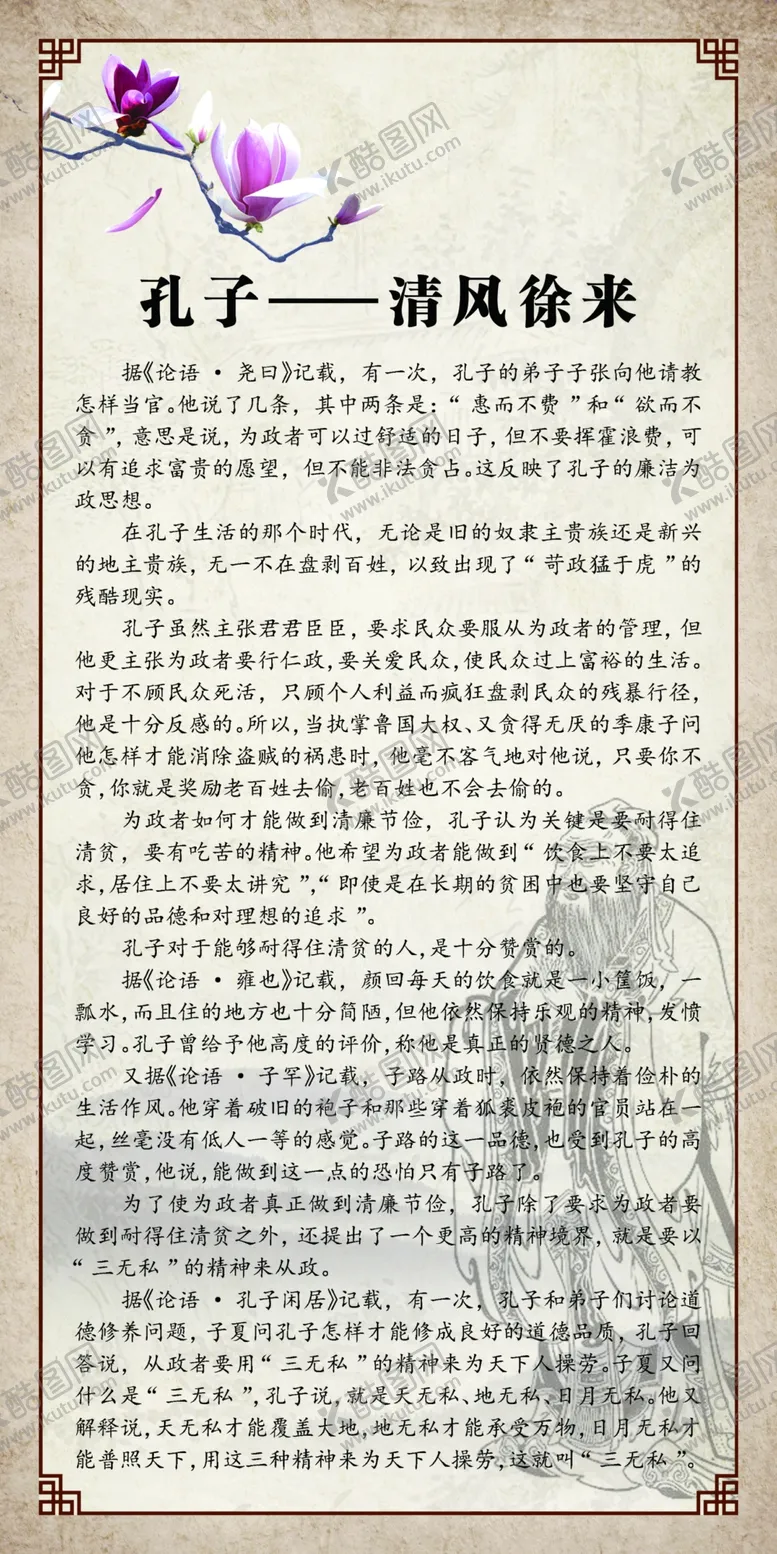 孔子——清风徐来
据《论语·尧曰》记载，有一次，孔子的弟子子张向他请教
怎样当官。他说了几条，其中两条是：“惠而不费”和“欲而不
贪”，意思是说，为政者可以过舒适的日子，但不要挥霍浪费，可
以有追求富贵的愿望，但不能非法贪占。这反映了孔子的廉洁为
政思想。
在孔子生活的那个时代，无论是旧的奴隶主贵族还是新兴
的地主贵族，无一不在盘剥百姓，以致出现了“苛政猛于虎”的
残酷现实。
孔子虽然主张君君臣臣，要求民众要服从为政者的管理，但
他更主张为政者要行仁政，要关爱民众，使民众过上富裕的生活。
对于不顾民众死活，只顾个人利益而疯狂盘剥民众的残暴行径，
他是十分反感的。所以，当执掌鲁国大权、又贪得无厌的季康子问
他怎样才能消除盗贼的祸患时，他毫不客气地对他说，只要你不
贪，你就是奖励老百姓去偷，老百姓也不会去偷的。
为政者如何才能做到清廉节俭，孔子认为关键是要耐得住
清贫，要有吃苦的精神。他希望为政者能做到“饮食上不要太追
求，居住上不要太讲究”，“即使是在长期的贫困中也要坚守自己
良好的品德和对理想的追求”。
孔子对于能够耐得住清贫的人，是十分赞赏的。
据《论语·雍也》记载，颜回每天的饮食就是一小筐饭，一
瓢水，而且住的地方也十分简陋，但他依然保持乐观的精神，发愤
学习。孔子曾给予他高度的评价，称他是真正的贤德之人。
又据《论语·子罕》记载，子路从政时，依然保持着俭朴的
生活作风。他穿着破旧的袍子和那些穿着狐裘皮袍的官员站在一
起，丝毫没有低人一等的感觉。子路的这一品德，也受到孔子的高
度赞赏，他说，能做到这一点的恐怕只有子路了。
为了使为政者真正做到清廉节俭，孔子除了要求为政者要
做到耐得住清贫之外，还提出了一个更高的精神境界，就是要以
“三无私”的精神来从政。
据《论语·孔子闲居》记载，有一次，孔子和弟子们讨论道
德修养问题，子夏问孔子怎样才能修成良好的道德品质，孔子回
答说，从政者要用“三无私”的精神来为天下人操劳。子夏又问
什么是“三无私”，孔子说，就是天无私、地无私、日月无私。他又
解释说，天无私才能覆盖大地，地无私才能承受万物，日月无私才
能普照天下，用这三种精神来为天下人操劳，这就叫“三无私”。
酷图网
www.ikutu.com